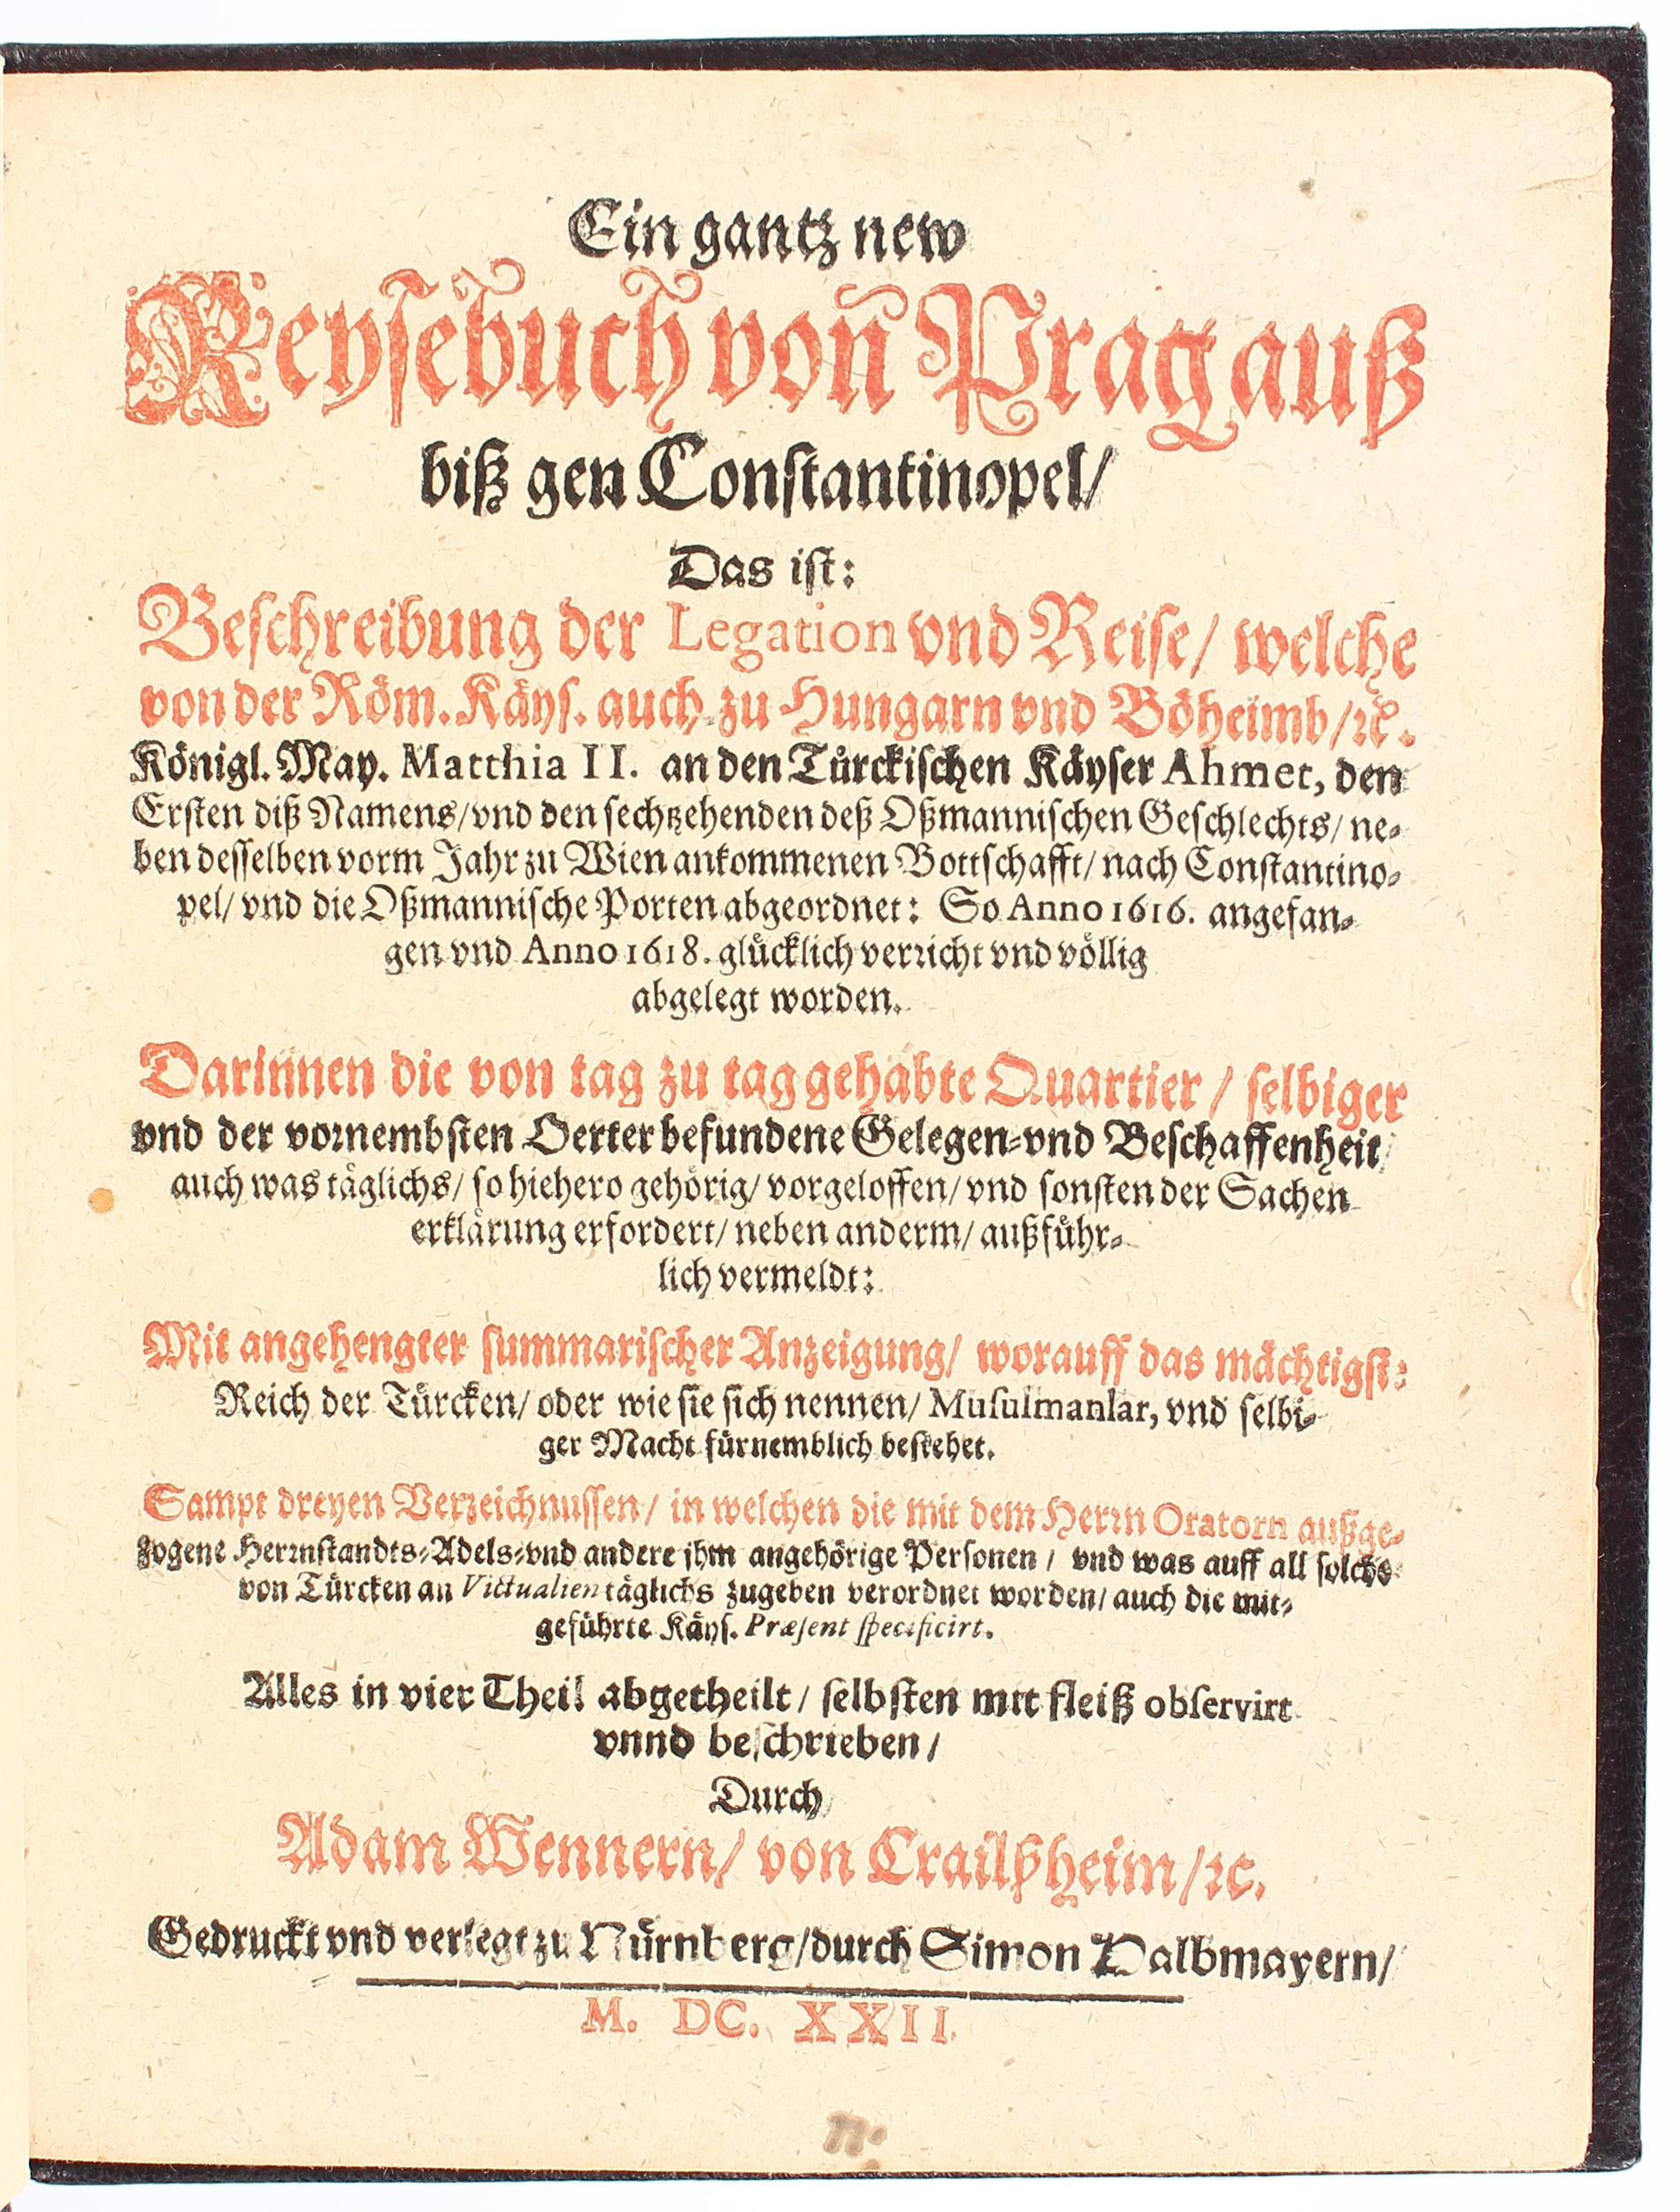 Ein gantz new
Reysebuch von Prag auß
biß gen Constantinopel/
Das ist:
Beschreibung der Legation vnd Reise/ welche
von der Röm. Käys. auch zu Hungarn vnd Böheimb/ꝛc.
Königl. May. Matthia II. an den Türckischen Käyser Ahmet, den
Ersten diß Namens/vnd den sechtzehenden deß Oßmannischen Geschlechts/ ne-
ben desselben vorm Jahr zu Wien ankommenen Bottschafft/ nach Constantino-
pel/ vnd die Oßmannische Porten abgeordnet: So Anno 1616. angefan-
gen vnd Anno 1618. glücklich verricht vnd völlig
abgelegt worden.
Darinnen die von tag zu tag gehabte Quartier/ selbiger
vnd der vornembsten Oerter befundene Gelegen-vnd Beschaffenheit/
auch was täglichs/ so hiehero gehörig/ vorgeloffen/ vnd sonsten der Sachen
erklärung erfordert/ neben anderm/ außführ-
lich vermeldt:
Mit angehengter summarischer Anzeigung/ worauff das mächtigst:
Reich der Türcken/ oder wie sie sich nennen/ Musulmanlar, vnd selbi-
ger Macht fürnemblich bestehet.
Sampt dreyen Verzeichnussen/ in welchen die mit dem Herrn Oratorn außge-
zogene Herrnstandts-Adels-vnd andere ihm angehörige Personen/ vnd was auff all solche
von Türcken an Victualien täglichs zugeben verordnet worden/ auch die mit-
geführte Käys. Præsent specificirt.
Alles in vier Theil abgetheilt/ selbsten mit fleiß observirt
vnnd beschrieben/
Durch
Adam Wennern/ von Crailßheim/ꝛc.
Gedruckt vnd verlegt zu Nürnberg/durch Simon Halbmayern/
M. DC. XXII.
n.